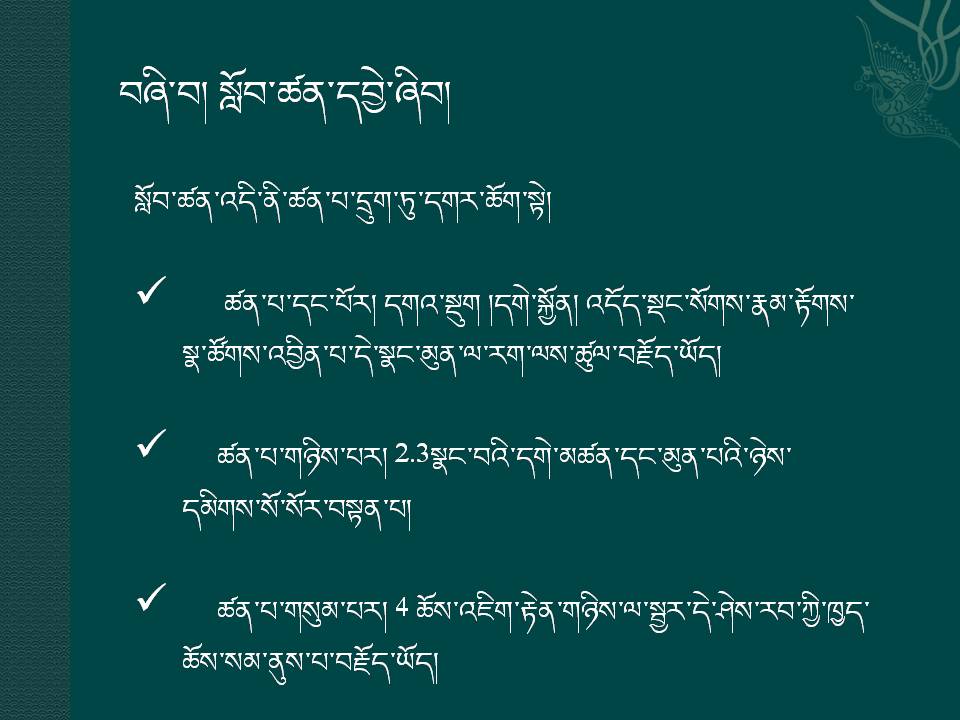 བཞི་བ། སློབ་ཚན་དབྱེ་ཞིབ།
སློབ་ཚན་འདི་ནི་ཚན་པ་དྲུག་ཏུ་དགར་ཆོག་སྟེ།
✓ ཚན་པ་དང་པོར། དགའ་སྡུག །དགེ་སྐྱོན། འདོད་སྡང་སོགས་རྣམ་རྟོགས་
སྣ་ཚོགས་འབྱིན་པ་དེ་སྣང་མུན་ལ་རག་ལས་ཚུལ་བརྗོད་ཡོད།
✓ ཚན་པ་གཉིས་པར། 2.3སྣང་བའི་དགེ་མཚན་དང་མུན་པའི་ཉེས་
དམིགས་སོ་སོར་བསྟན་པ།
✓ ཚན་པ་གསུམ་པར། 4 ཆོས་འཇིག་རྟེན་གཉིས་ལ་སྦྱར་དེ་ཤེས་རབ་ཀྱི་ཁྱད་
ཆོས་སམ་ནུས་པ་བརྗོད་ཡོད།